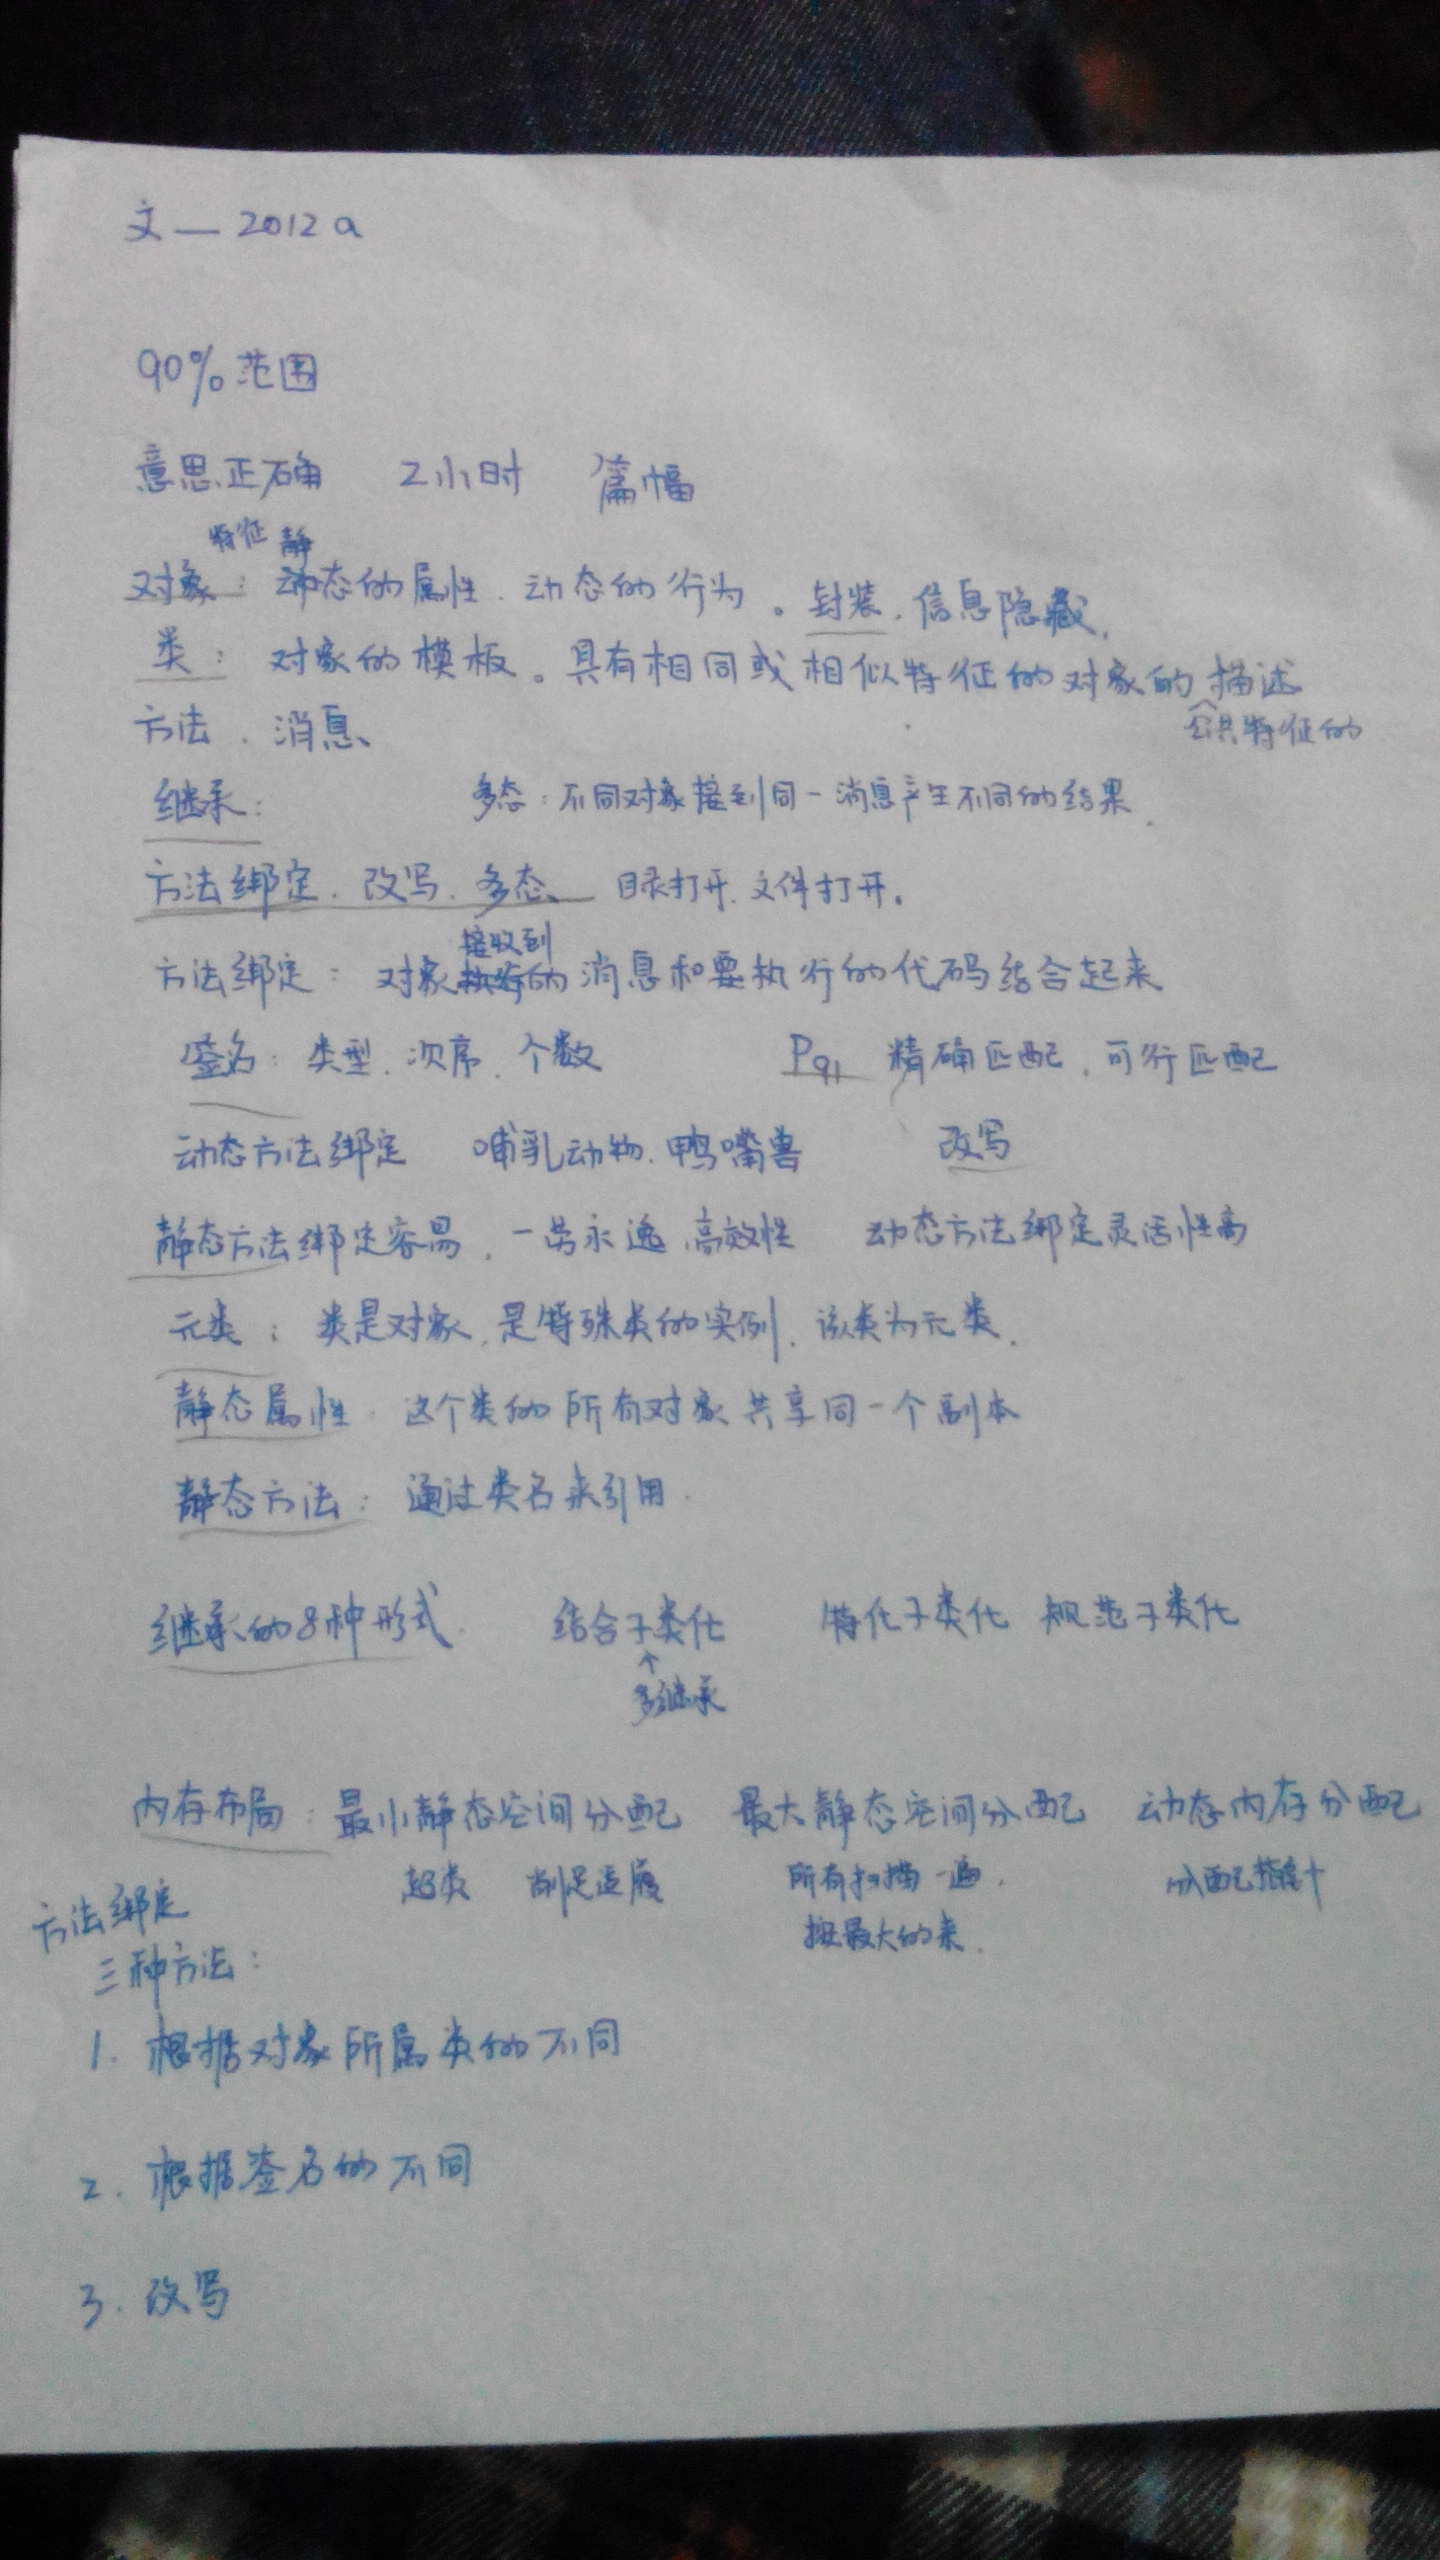 文—2012a
90%范围
意思正确 2小时 篇幅
特征 静
对象: 动态的属性、动态的行为。封装、信息隐藏,
类: 对象的模板。具有相同或相似特征的对象的描述
公共特征的
方法、消息、
继承: 多态:不同对象接到同一消息产生不同的结果.
方法绑定、改写、多态、 目录打开、文件打开。
接收到
方法绑定: 对象的消息和要执行的代码结合起来
签名: 类型、次序、个数 P91 精确匹配、可行匹配
动态方法绑定 哺乳动物、鸭嘴兽 改写
静态方法绑定容易,一劳永逸,高效性 动态方法绑定灵活性高
元类: 类是对象,是特殊类的实例,该类为元类.
静态属性: 这个类的所有对象共享同一个副本
静态方法: 通过类名来引用.
继承的8种形式. 结合子类化 特化子类化 规范子类化
↑
多继承
内存布局: 最小静态空间分配 最大静态空间分配 动态内存分配
超类 削足适履 所有扫描一遍, 分配指针
按最大的来.
方法绑定
三种方法:
1. 根据对象所属类的不同
2. 根据签名的不同
3. 改写